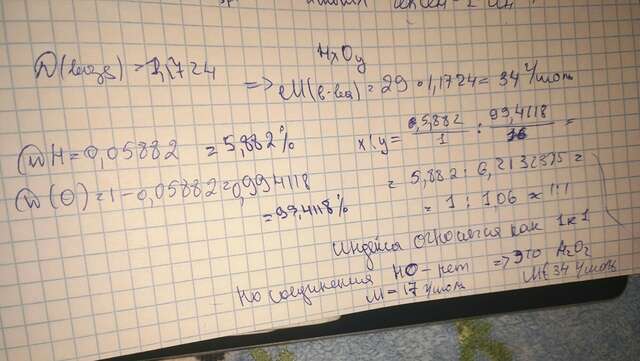 D(возд) = 1,1724
HxOy
=> M(в-ва) = 29 · 1,1724 = 34 г/моль
W H = 0,05882 = 5,882%
W(O) = 1 - 0,05882 = 0,994118
= 99,4118%
x : y = 5,882/1 : 99,4118/16 =
= 5,882 : 6,2132375 =
= 1 : 1,06 ≈ 1:1
Индексы относятся как 1 к 1
Но соединения HO - нет => это H2O2
M = 17 г/моль M = 34 г/моль